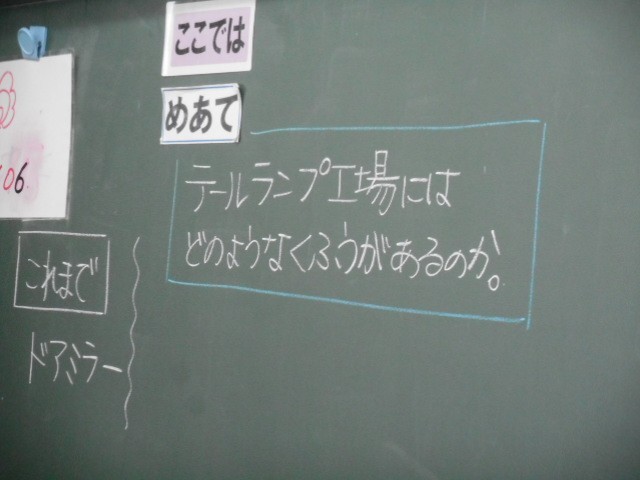 ここでは
めあて
テールランプ工場には
どのようなくふうがあるのか。
06
これまで
ドアミラー